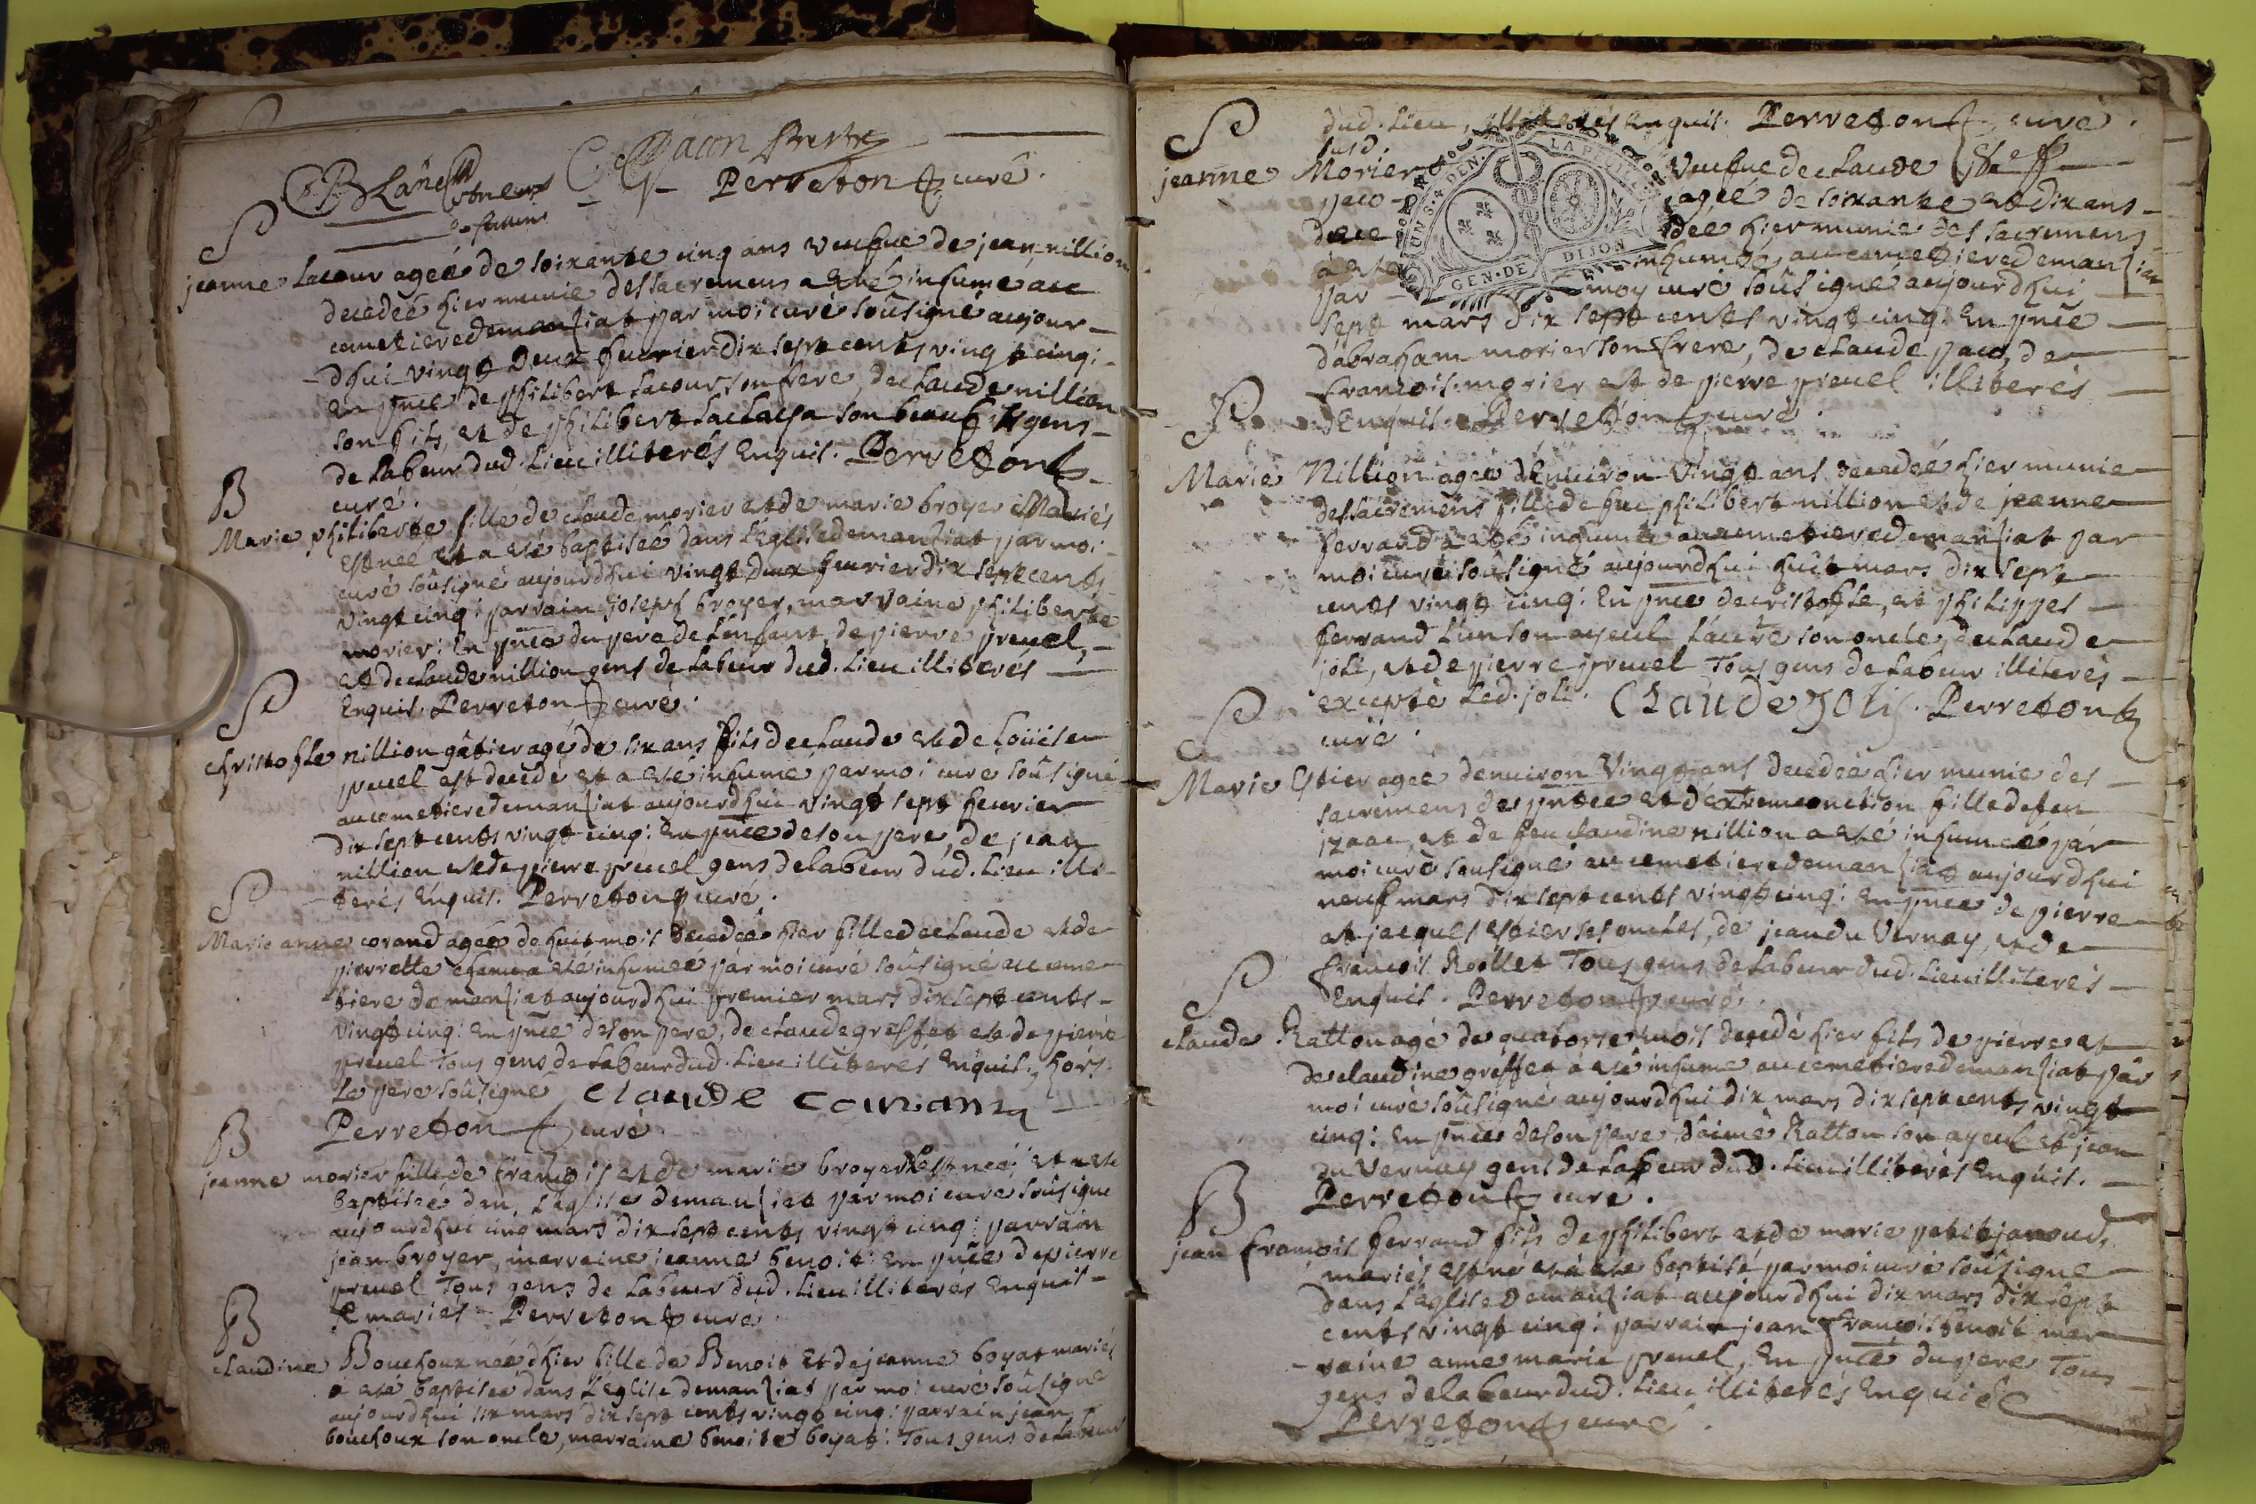 Perreton curé.
S
jeanne Lacour agée de soixante cinq ans veufue de jean nillion
decedée hier munie des sacremens a eté inhumé au
cemetiere de manziat par moi curé soûsigné aujour-
dhui vingt deux feurier dix sept cents vingt cinq:
En pñce de philibert Lacour son frere, de claude nillion
son fils, et de philibert son beauf gens
de Labeur dud. Lieu illiterés Enquis. Perreton
curé.
B
Marie philiberte fille de claude morier et de marie broyer Mariés
Est née et a eté baptisée dans L'Eglise de manziat par moi
curé soûsigné aujourdhui vingt deux feurier dix sept cents
vingt cinq: parrain joseph broyer, marraine philiberte
morier: En pñce du pere de L'enfant, de pierre preuel,
et de claude nillion gens de Labeur dud. Lieu illiterés
Enquis. Perreton curé.
S
christofle nillion gâtier agé de six ans fils de claude et de Loüise
preuel est decedé et a eté inhumé par moi curé soûsigné
au cemetiere de manziat aujourdhui vingt sept feurier
dix sept cents vingt cinq: En pñce de son pere, de jean
nillion et de pierre preuel gens de labeur dud. Lieu illi-
terés Enquis. Perreton curé.
S
Marie anne corand agée de huit mois decedée hier fille de claude et de
pierrette a eté inhumée par moi curé soûsigné au ceme-
tiere de manziat aujourdhui premier mars dix sept cents
vingt cinq: En pñce de son pere, de claude greffet et de pierre
preuel Tous gens de Labeur dud. Lieu illiterés Enquis, hors
Le pere soûsigné claude
Perreton curé
B
jeanne morier fille de françois et de marie broyer Est née et a eté
baptisée dans L'eglise de manziat par moi curé soûsigné
aujourdhui cinq mars dix sept cents vingt cinq: parrain
jean broyer, marraine jeanne benoit: En pñce de pierre
preuel Tous gens de Labeur dud. Lieu illiterés Enquis
mariés Perreton curé
B
claudine Bouchoux née d'hier fille de Benoit et de jeanne boyat mariés
a eté baptisée dans L'Eglise de manziat par moi curé soûsigné
aujourdhui six mars dix sept cents vingt cinq: parrain jean
bouchoux son oncle, marraine benoite boyat: Tous gens de Labeur
dud. Lieu, illiterés Enquis. Perreton curé.
S
jeanne Morier veufue de claude
agée de soixante et dix ans
hier munie des sacremens
a eté inhumée au cemetiere de manziat
par moy curé soûsigné aujourdhui
sept mars dix sept cents vingt cinq: En pñce
d'abraham morier son frere, de claude paco, de
françois morier et de pierre preuel illiterés
Enquis. Perreton curé.
S
Marie Nillion agée d'Enuiron vingt ans decedée hier munie
des sacremens fille de feu philibert nillion et de jeanne
ferrand a eté inhumée au cemetiere de manziat par
moi curé soûsigné aujourdhui huit mars dix sept
cents vingt cinq: En pñce de cristofle, et philippes
ferrand L'un son ayeul L'autre son oncle, de claude
joli, et de pierre preuel Tous gens de Labeur illiterés
excepté Led. joli. Claude Joli. Perreton
curé.
S
Marie Estier agée denuiron vingt ans decedée hier munie des
sacremens de pnitce et d'extremeonction fille de feu
jzaac, et de feu claudine nillion a eté inhumée par
moi curé soûsigné au cemetiere de manziat aujourdhui
neuf mars dix sept cents vingt cinq: En pñce de pierre
et jacques estier ses oncles, de jean du Vernay, et de
françois Rollet Tous gens de Labeur dud. Lieu illiterés
Enquis. Perreton curé.
S
claude Ratton agé de quatorze mois decedé hier fils de pierre et
de claudine greffet a eté inhumé au cemetiere de manziat par
moi curé soûsigné aujourdhui dix mars dix sept cents vingt
cinq: En pñce de son pere d'aimé Ratton son ayeul et jean
du Vernay gens de Labeur dud. Lieu illiterés Enquis.
Perreton curé.
B
jean françois ferrand fils de philibert et de marie petitjanoud,
mariés est né et a eté baptisé par moi curé soûsigné
dans L'eglise de manziat aujourdhui dix mars dix sept
cents vingt cinq: parrain jean françois benoit mar-
raine anne marie preuel, En pñce du pere Tous
gens de labeur dud. Lieu illiterés Enquis
Perreton curé.
GEN. DE DIJON